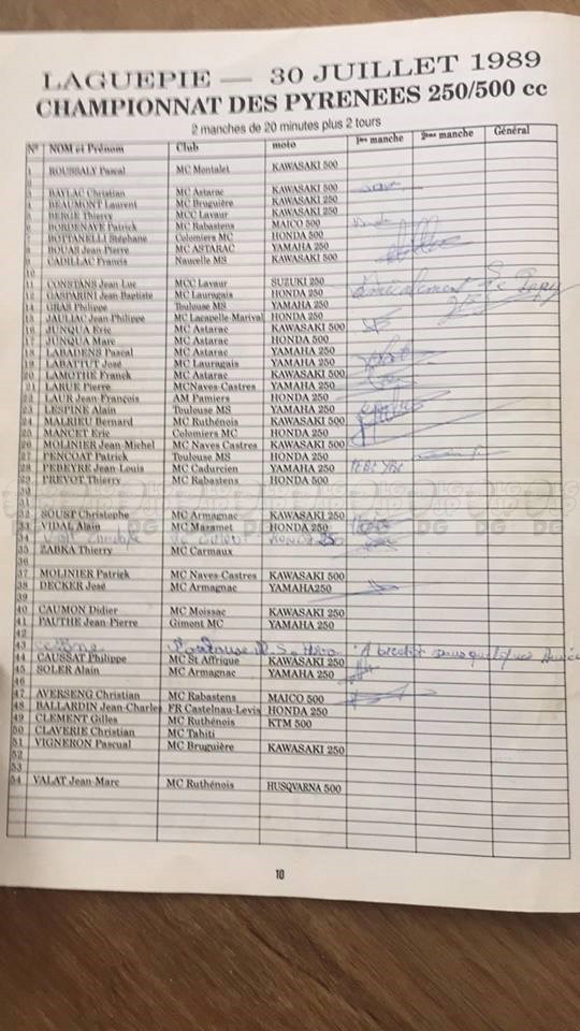 LAGUEPIE — 30 JUILLET 1989
CHAMPIONNAT DES PYRENEES 250/500 cc
2 manches de 20 minutes plus 2 tours
N° NOM et Prénom Club moto 1ère manche 2ème manche Général
1 ROUSSALY Pascal MC Montalet KAWASAKI 500
2
3 BAYLAC Christian MC Astarac KAWASAKI 250
4 BEAUMONT Laurent MC Bruguière KAWASAKI 250
5 BERGE Thierry MCC Lavaur KAWASAKI 250
6 BORDENAVE Patrick MC Rabastens MAICO 500
BOTTANELLI Stéphane Colomiers MC HONDA 500
8 BOUAS Jean-Pierre MC ASTARAC YAMAHA 250
9 CADILLAC Francis Naucelle MS KAWASAKI 500
10
11 CONSTANS Jean-Luc MCC Lavaur SUZUKI 250
12 GASPARINI Jean-Baptiste MC Lauragais HONDA 250
14 GRAS Philippe Toulouse MS YAMAHA 250
15 JAULIAC Jean-Philippe MC Lacapelle-Marival HONDA 250
16 JUNQUA Eric MC Astarac KAWASAKI 500
17 JUNQUA Marc MC Astarac HONDA 500
18 LABADENS Pascal MC Astarac YAMAHA 250
19 LABATTUT José MC Lauragais YAMAHA 250
20 LAMOTHE Franck MC Astarac KAWASAKI 500
21 LARUE Pierre MCNaves-Castres YAMAHA 250
22 LAUR Jean-François AM Pamiers HONDA 250
23 LESPINE Alain Toulouse MS YAMAHA 250
24 MALRIEU Bernard MC Ruthénois KAWASAKI 500
25 MANCET Eric Colomiers MC HONDA 250
26 MOLINIER Jean-Michel MC Naves Castres KAWASAKI 500
27 PENCOAT Patrick Toulouse MS HONDA 250
28 PEBEYRE Jean-Louis MC Cadurcien YAMAHA 250
29 PREVOT Thierry MC Rabastens HONDA 500
30
32 SOUST Christophe MC Armagnac KAWASAKI 250
33 VIDAL Alain MC Mazamet HONDA 250
34 HONDA 250
35 ZABKA Thierry MC Carmaux
36
37 MOLINIER Patrick MC Naves-Castres KAWASAKI 500
38 DECKER José MC Armagnac YAMAHA250
39
40 CAUMON Didier MC Moissac KAWASAKI 250
41 PAUTHE Jean-Pierre Gimont MC YAMAHA 250
42
43 Toulouse
44 CAUSSAT Philippe MC St Affrique KAWASAKI 250
45 SOLER Alain MC Armagnac YAMAHA 250
46
47 AVERSENG Christian MC Rabastens MAICO 500
48 BALLARDIN Jean-Charles FR Castelnau-Levis HONDA 250
49 CLEMENT Gilles MC Ruthénois KTM 500
50 CLAVERIE Christian MC Tahiti
51 VIGNERON Pascual MC Bruguière KAWASAKI 250
52
53
54 VALAT Jean-Marc MC Ruthénois HUSQVARNA 500
10